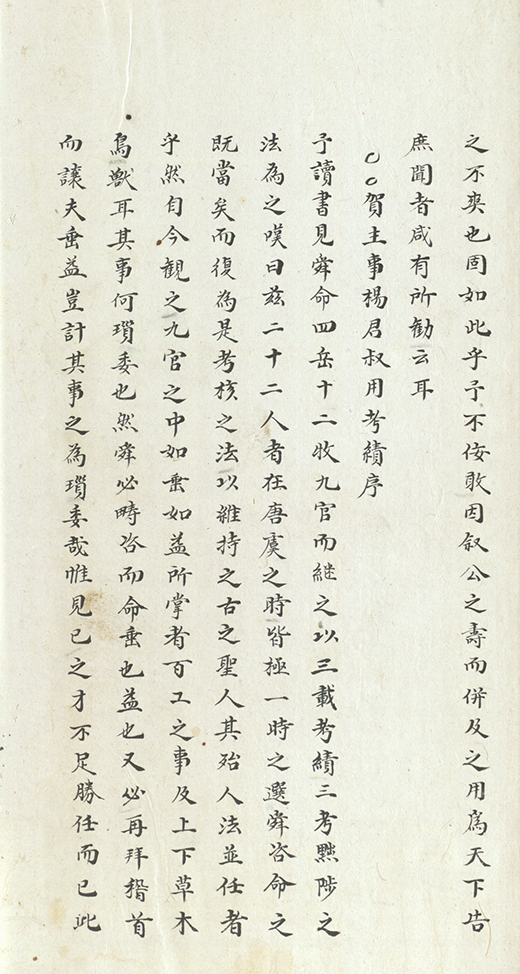 之不爽也固如此乎予不佞敢因叙公之壽而併及之用為天下告
庶聞者咸有所勸云耳
○○賀主事楊君叔用考績序
予讀書見舜命四岳十二牧九官而継之以三載考績三考黜陟之
法為之嘆曰兹二十二人者在唐虞之時皆極一時之選舜咨命之
既當矣而復為是考核之法以維持之古之聖人其殆人法並任者
乎然自今觀之九官之中如垂如益所掌者百工之事及上下草木
鳥獸耳其事何瑣委也然舜必疇咨而命垂也益也又必再拜稽首
而讓夫垂益豈計其事之為瑣委哉惟見己之才不足勝任而已此